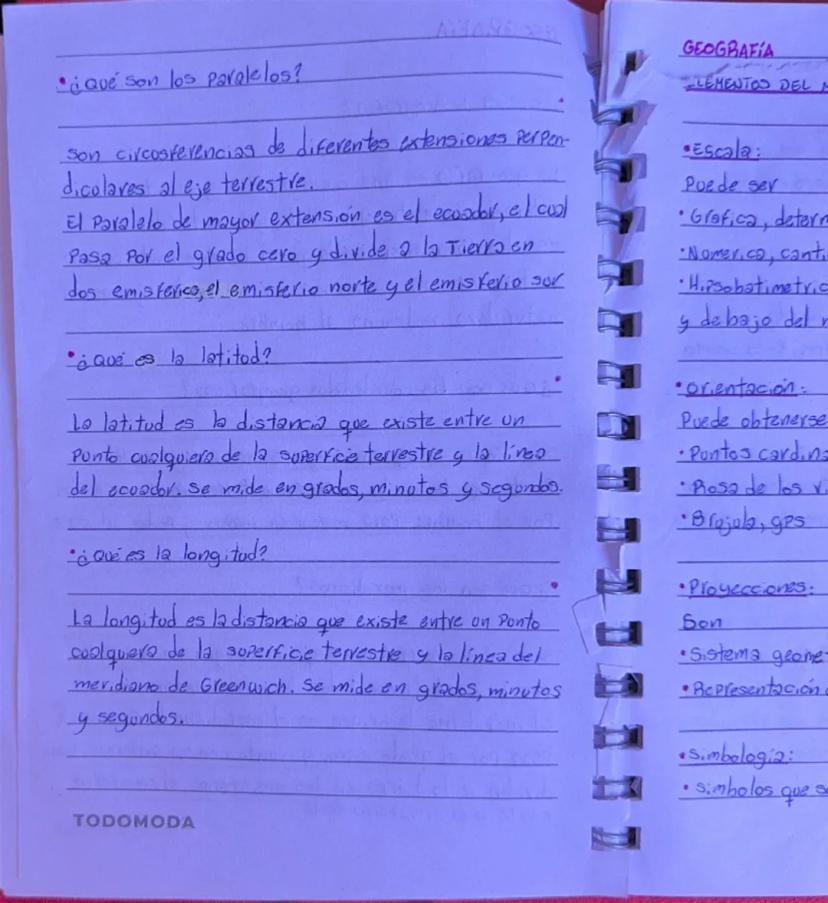 •¿Qué son los paralelos?
Son circosferencias de diferentes extensiones perpen-
dicolares al eje terrestre.
El Paralelo de mayor extensión es el ecoador, el cual
Pasa Por el grado cero y divide a la Tierra en
dos emisferios, el emisferio norte y el emisferio sur
•¿Qué es la latitod?
La latitud es la distancia que existe entre un
Punto cualquiera de la superficie terrestre y la línea
del ecoador. Se mide en grados, minutos y segundos.
•¿Qué es la longitud?
La longitud es la distancia que existe entre un Ponto
cualquiera de la superficie terrestre y la línea del
meridiano de Greenwich. Se mide en grados, minutos
y segundos.
TODOMODA
GEOGRAFÍA
ELEMENTOS DEL
•Escala:
Puede ser
•Gráfica, determ
•Nomerica, canti
•Hipsobatimetric
y debajo del
•Orientación:
Puede obtenerse
•Pontos cardina
•Rosa de los v
•Brojola, gps
•Proyecciones:
Son
•Sistema geome
•Representación
•Simbología:
•Simbolos que s